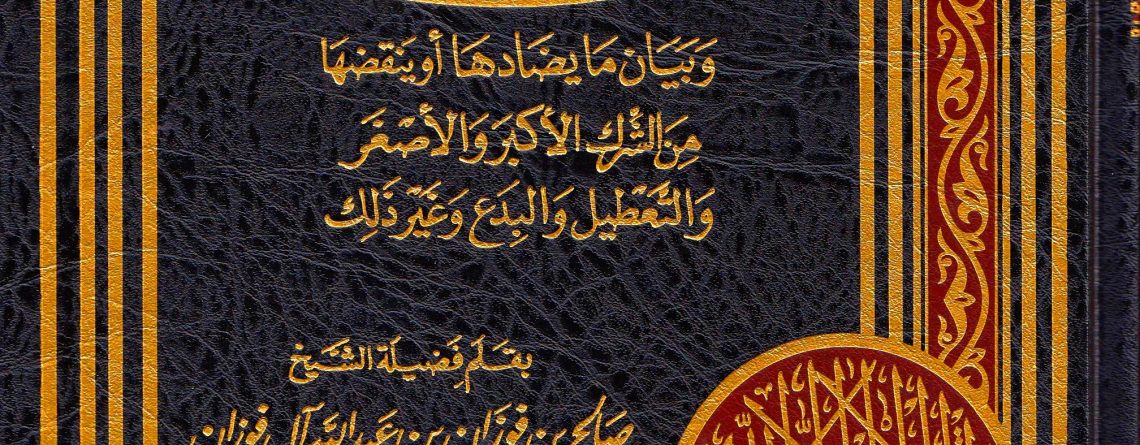 وَبَيَان مَا يضَادهَا أو يَنقضهَا
مِنَ الشِّرك الأكبَر وَالأصْغَر
وَالتَّعْطيل وَالبِدَع وَغَيْر ذَلِك
بقَلَم فَضيلَة الشَّيخ
صَالح بن فَوزَان بن عَبد الله آل فوزان